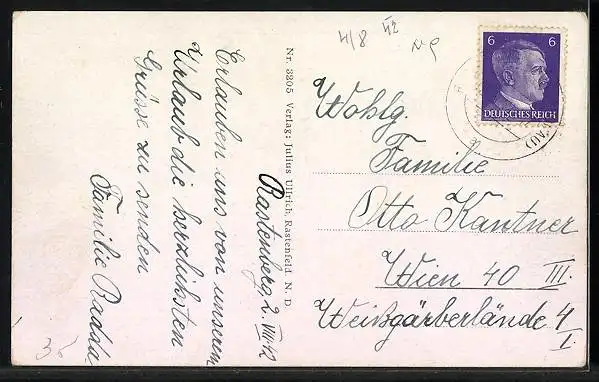 4/8 VIII 42
Nr. 3205 Verlag: Julius Ullrich, Rastenfeld N. D.
Rastenberg, 2. VIII. 42
Erlauben uns von unserem
Urlaub die herzlichsten
Grüsse zu senden
Familie
6 6
DEUTSCHES REICH
Wohlg.
Familie
Otto Kantner
Wien 40 III.
Weißgärberlände 4
I.
35